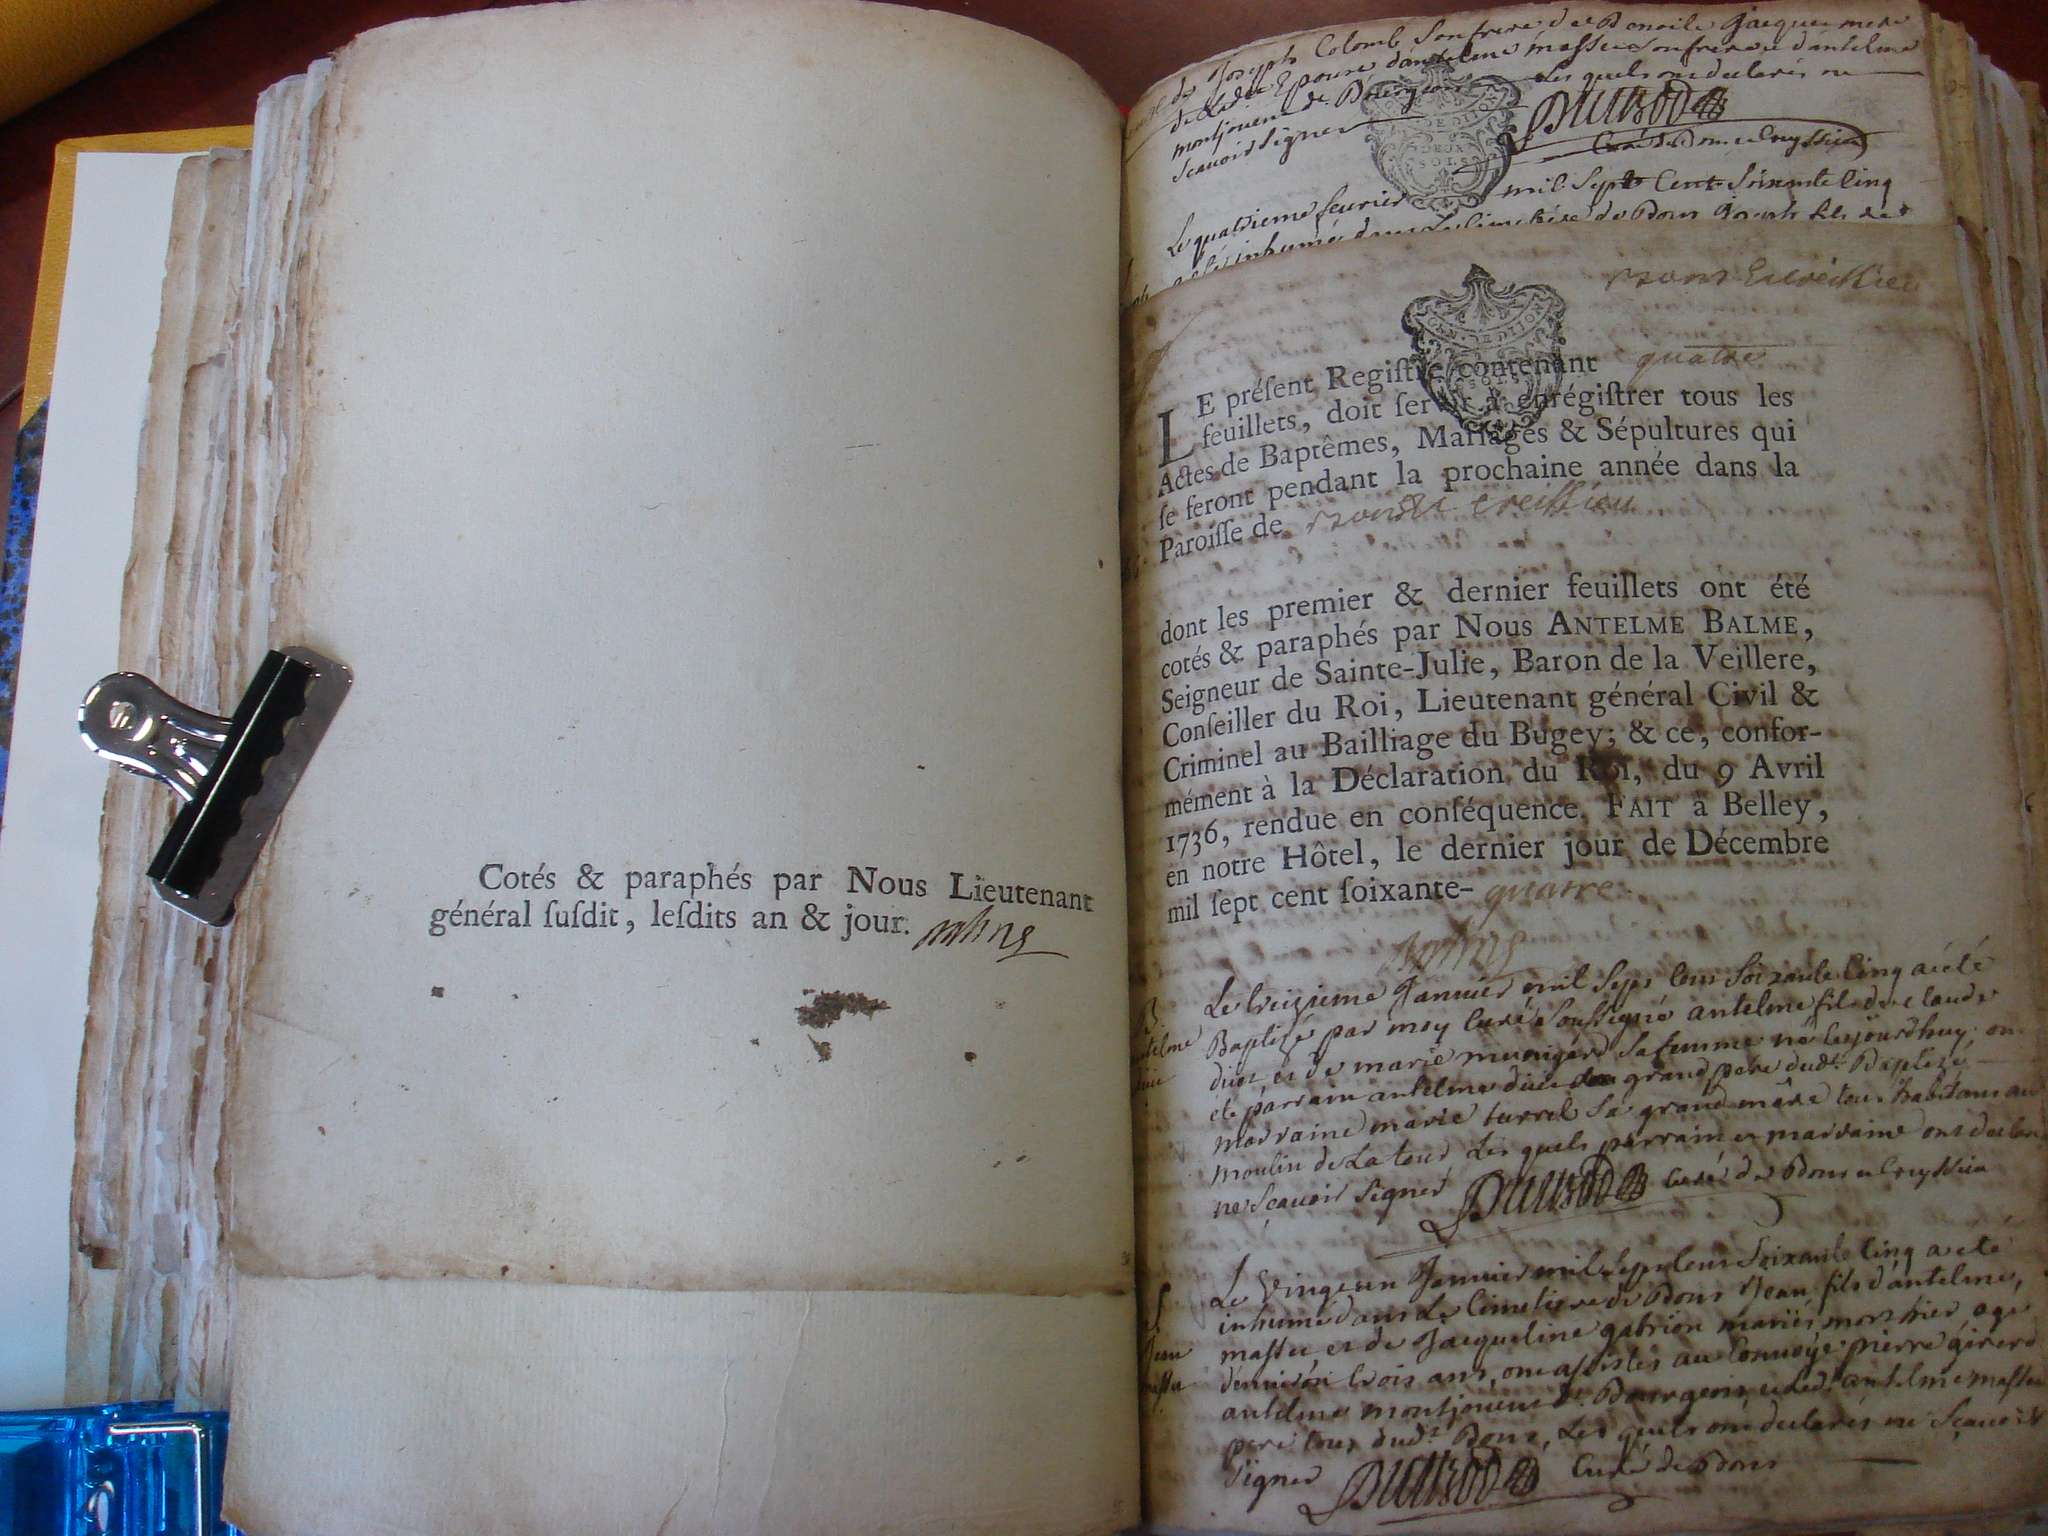 Cotés & paraphés par Nous Lieutenant
général ſuſdit, leſdits an & jour.
de Joseph Colomb
de Ladie Epouse d'antelme
montjouent de Bourgeois Les quels ont declarés ne
scauoir signer
Curé de Bons et Cuyssieu
Le quatrieme feurier mil sept Cent soixante Cinq
inhumé dans Le Cimetiere de Bons Joseph fils de
GEN. DE DIJON
DEUX
SOLS
GEN. DE DIJON
SOLS
LE préſent Regiſtre contenant quatre
feuillets, doit ſervir à enrégiſtrer tous les
Actes de Baptêmes, Mariages & Sépultures qui
ſe feront pendant la prochaine année dans la
Paroiſſe de
dont les premier & dernier feuillets ont été
cotés & paraphés par Nous ANTELME BALME,
Seigneur de Sainte-Julie, Baron de la Veillere,
Conſeiller du Roi, Lieutenant général Civil &
Criminel au Bailliage du Bugey; & ce, confor-
mément à la Déclaration du Roi, du 9 Avril
1736, rendue en conſéquence. FAIT à Belley,
en notre Hôtel, le dernier jour de Décembre
mil ſept cent ſoixante- quatre
Le treizieme Janvier mil sept Cens soixante Cinq a été
Baptizé par moy Curé soussigné antelme fils de claude
et de marie sa femme né ce jourdhuy, on
été parrain antelme grand pere dudt Baptizé
marraine marie turrel sa grand mère tous habitans au
moulin de La tour Les quels parrain et marraine ont declaré
ne scauoir signer Curé de Bons et Cuyssieu
Le vingt un Janvier mil sept Cens soixante Cinq a eté
inhumé dans Le Cimetiere de Bons Jean fils d'antelme
et de Jacqueline gabrion mariés mort hier agé
d'environ trois ans, ont assistés au Convoye pierre girerd
antelme montjouent dt Bourgeois et ledt antelme
pere tous dudt Bons, Les quels ont declarés ne scauoir
signer Curé de Bons